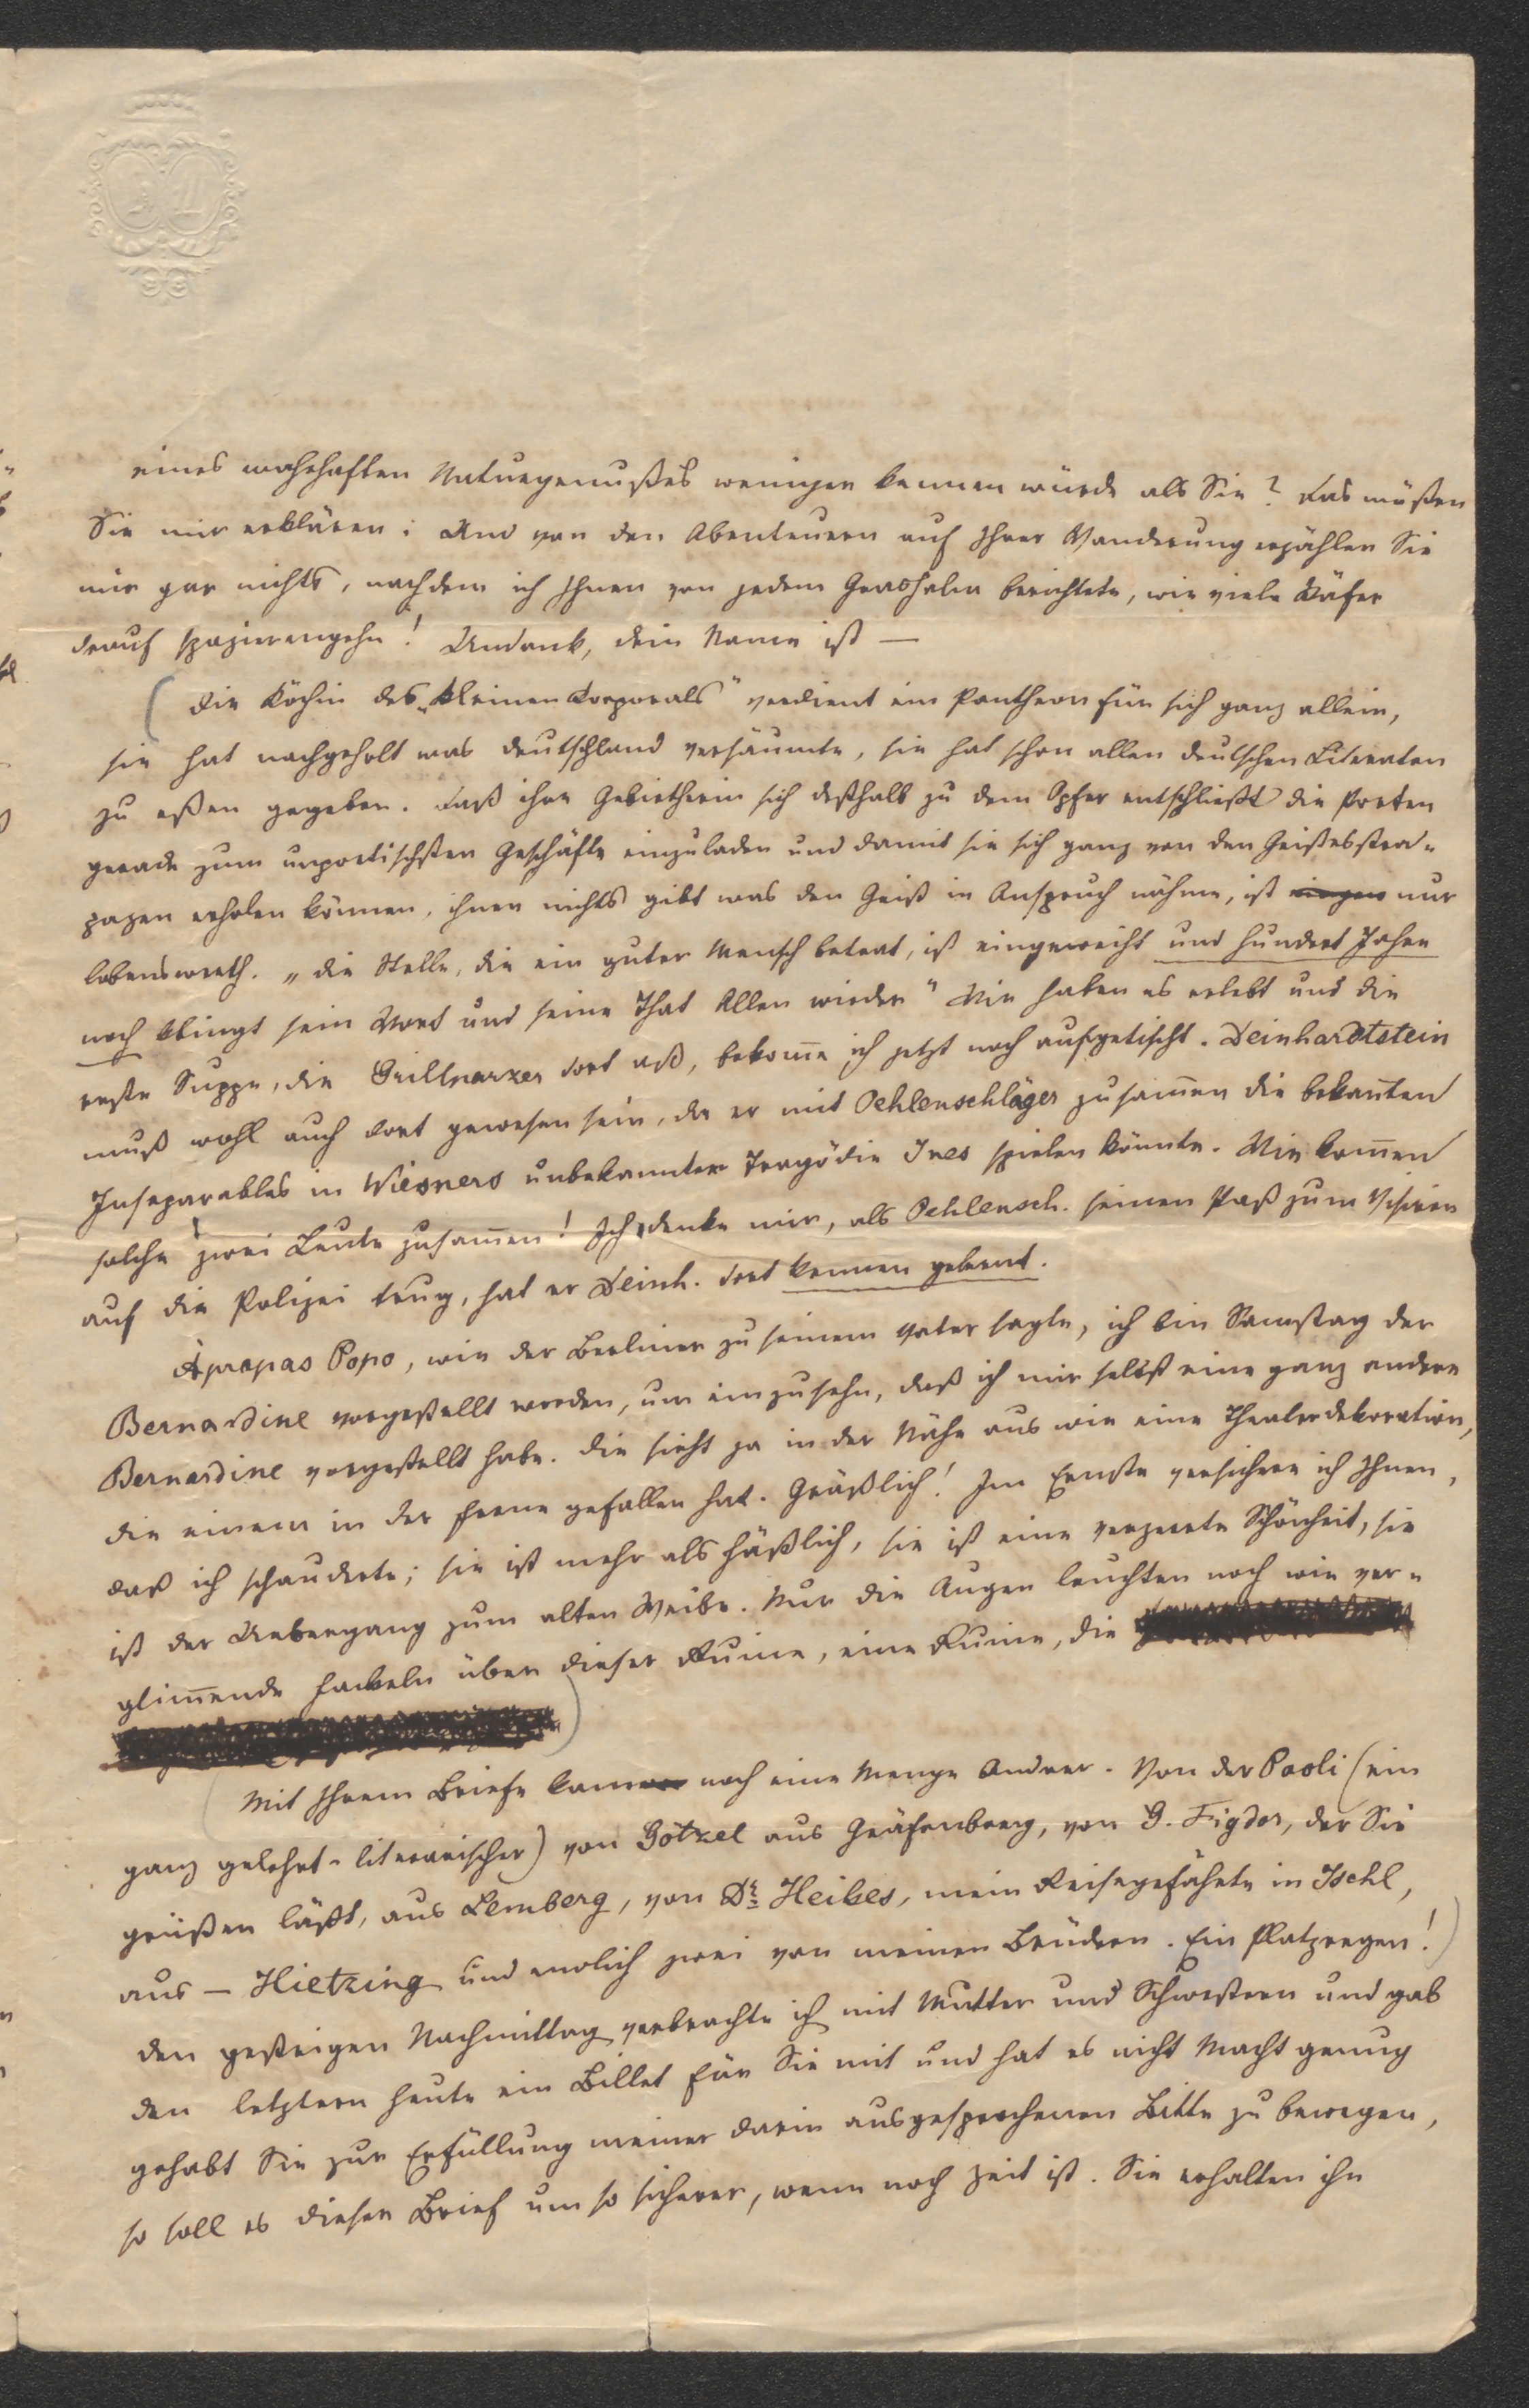 eines wahrhaften Naturgenußes weniger kennen würde als Sie? Das müßen
Sie mir erklären: Und von den Abenteuern auf Ihrer Wanderung erzählen Sie
mir gar nichts, nachdem ich Ihnen von jedem Grashalm berichtete, wie viele Käfer
drauf spazierengehn! Undank, dein Name ist —
(Die Köchin des „kleinen Korporals" verdient ein Pantheon für sich ganz allein,
sie hat nachgeholt was Deutschland versäumte, sie hat schon allen deutschen Literaten
zu eßen gegeben. Daß ihre Gebietherin sich deßhalb zu dem Opfer entschließt die Poeten
gerade zum unpoetischsten Geschäfte einzuladen und damit sie sich ganz von den Geistesstra-
pazen erholen können, ihnen nichts gibt was den Geist in Anspruch nähme, ist nur
lobenswerth. „Die Stelle, die ein guter Mensch betrat, ist eingeweiht und hundert Jahre
noch klingt sein Wort und seine That Allen wieder" Wir haben es erlebt und die
erste Suppe, die Grillparzer dort aß, bekom̄e ich jetzt noch aufgetischt. Deinhardtstein
muß wohl auch dort gewesen sein, da er mit Oehlenschläger zusam̄en die bekan̄ten
Inseparables in Wiesners unbekannter Tragödie Ines spielen könnte. Wie kom̄en
solche zwei Leute zusam̄en! Ich denke mir, als Oehlensch. seinen Paß zum Visiren
auf die Polizei trug, hat er Deinh. dort kennen gelernt.
Apropas Popo, wie der Berliner zu seinem Vater sagte, ich bin Samstag der
Bernardine vorgestellt worden, um einzusehn, daß ich mir selbst eine ganz andere
Bernardine vorgestellt habe. Die sieht ja in der Nähe aus wie eine Theaterdekoration,
die einem in der Ferne gefallen hat. Gräßlich! Im Ernste versichere ich Ihnen,
daß ich schauderte; sie ist mehr als häßlich, sie ist eine verzerrte Schönheit, sie
ist der Uebergang zum alten Weibe. Nur die Augen leuchten noch wie ver-
glim̄ende Fackeln über dieser Ruine, eine Ruine, die
)
Mit Ihrem Briefe kam noch eine Menge Andrer. Von der Paoli (ein
ganz gelehrt-literarischer) von Götzel aus Gräfenberg, von G. Figdor, der Sie
grüßen läßt, aus Lemberg, von Dr Heikes, mein Reisegefährte in Ischl,
aus — Hietzing und endlich zwei von meinen Brüdern. Ein Platzregen!)
Den gestrigen Nachmittag verbrachte ich mit Mutter und Schwestern und gab
den letztern heute ein Billet für Sie mit und hat es nicht Macht genug
gehabt Sie zur Erfüllung meiner darin ausgesprochenen Bitte zu bewegen,
so soll es dieser Brief um so sicherer, wenn noch Zeit ist. Sie erhalten ihn